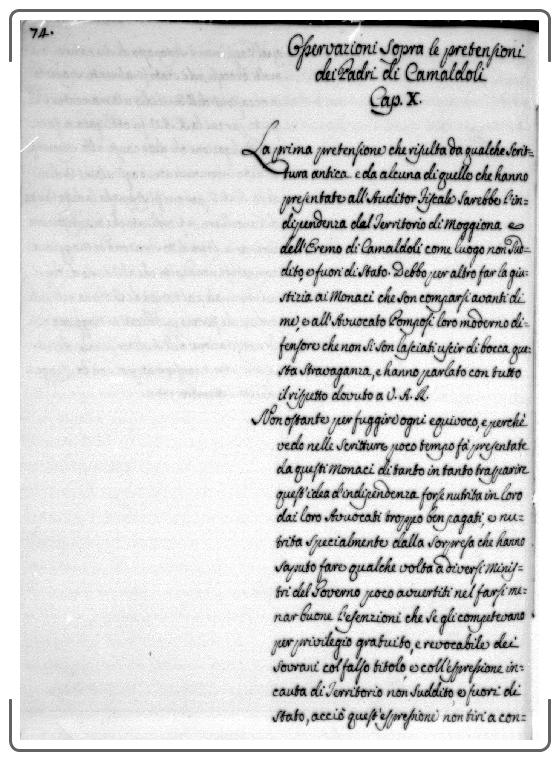 74.
Osservazioni sopra le pretensioni
dei Padri di Camaldoli
Cap. X.
La prima pretensione che risulta da qualche scrit=
tura antica e da alcuna di quelle che hanno
presentate all'Auditor Fiscale sarebbe l'in=
dipendenza del Territorio di Moggiona e
dell'Eremo di Camaldoli come luogo non sud=
dito, e fuori di Stato. Debbo per altro far la giu=
stizia ai Monaci che son comparsi avanti di
me e all'Avvocato Pomposi loro moderno di=
fensore che non si son lasciati uscir di bocca que=
sta stravaganza, e hanno parlato con tutto
il rispetto dovuto a V. A. R.
Non ostante per fuggire ogni equivoco, e perchè
vedo nelle scritture poco tempo fà presentate
da questi Monaci di tanto in tanto trasparire
quest'idea d'indipendenza forse nutrita in loro
dai loro Avvocati troppo ben pagati, e nu=
trita specialmente dalla sorpresa che hanno
saputo fare qualche volta a diversi Minis=
tri del Governo poco avvertiti nel farsi me=
nar buone l'esenzioni che se gli competevano
per privilegio gratuito, e revocabile dei
sovrani col falso titolo, e coll'espressione in=
cauta di Territorio non suddito, e fuori di
Stato, acciò quest'espressione non tiri a con=